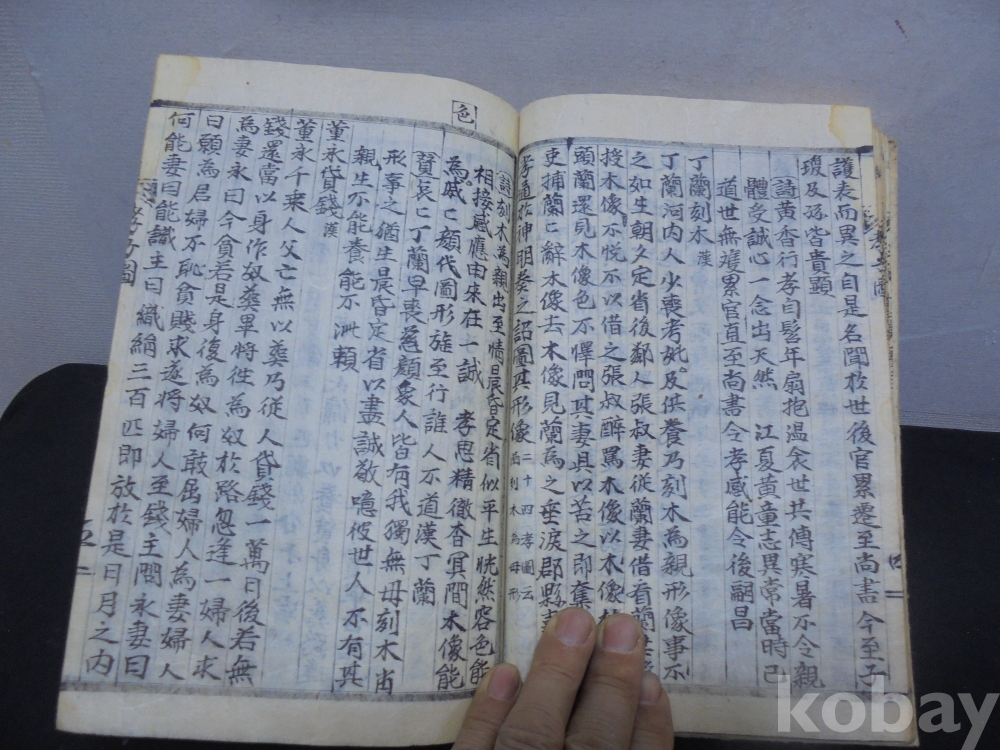 護表而異之自是名聞於世後官累遷至尚書 今至子
瓊及孫皆貴顯
詩黃香行孝自髫年扇抱温衾世共傳寒暑不令親
體受誠心一念出天然 江夏黃童志異常當時已
道世無雙累官直至尚書令孝感能令後嗣昌
丁蘭刻木 漢
丁蘭河内人少喪考妣不及供養乃刻木為親形像事
之如生朝夕定省後鄰人張叔妻從蘭妻借看蘭妻
授木像不悅不以借之張叔醉罵木像以木像
頭蘭還見木像色不懌問其妻具以苦之即奮
吏捕蘭亡辭木像去木像見蘭為之垂淚郡縣
孝通於神明奏之詔圖其形像 二十四孝圖云 刻木為母形
色
詩刻木為親出至情晨昏定省似平生恍然容色能
相接感應由来在一誠 孝思精徹杳冥間木像能
為戚亡顔代圖形旌至行誰人不道漢丁蘭
賢哉亡丁蘭早喪慈顔象人皆有我獨無母刻木肖
形事之猶生晨昏定省以盡誠敬噫彼世人不有其
親生不能養能不泚顙
董永貸錢 漢
董永千乘人父亡無以葬乃從人貸錢一萬曰後若無
錢還當以身作奴葬畢將徃為奴於路忽逢一婦人求
為妻永曰今貧若是身後為奴何敢屈婦人為妻婦人
曰願為君婦不恥貧賤求遂將婦人至錢主問永妻曰
何能妻曰能識主曰織絹三百匹即放於是日月之内
孝子圖